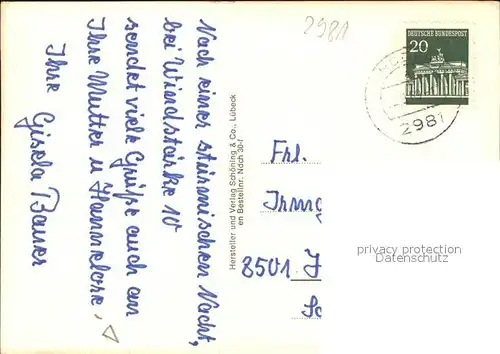 2981
DEUTSCHE BUNDESPOST
20
2981
Nach einer stürmischen Nacht,
bei Windstärke 10
sendet viele Grüße auch an
Ihre Mutter u Hannelore,
Ihre Gisela Bauer
Hersteller und Verlag Schöning & Co., Lübeck
en Bestellnr. Ndch 30-f
Frl.
Irmg
8501 F
Sc
privacy protection
Datenschutz